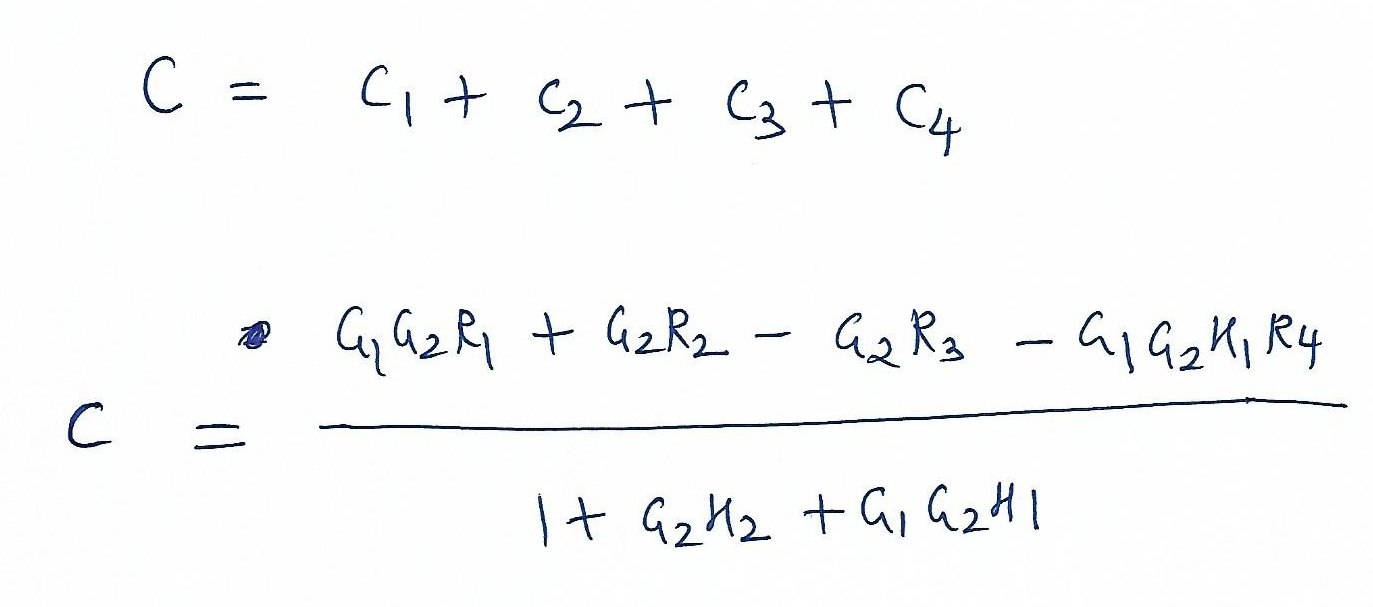 C = C₁ + C₂ + C₃ + C₄
G₁G₂R₁ + G₂R₂ - G₂R₃ - G₁G₂H₁R₄
C =
1 + G₂H₂ + G₁G₂H1